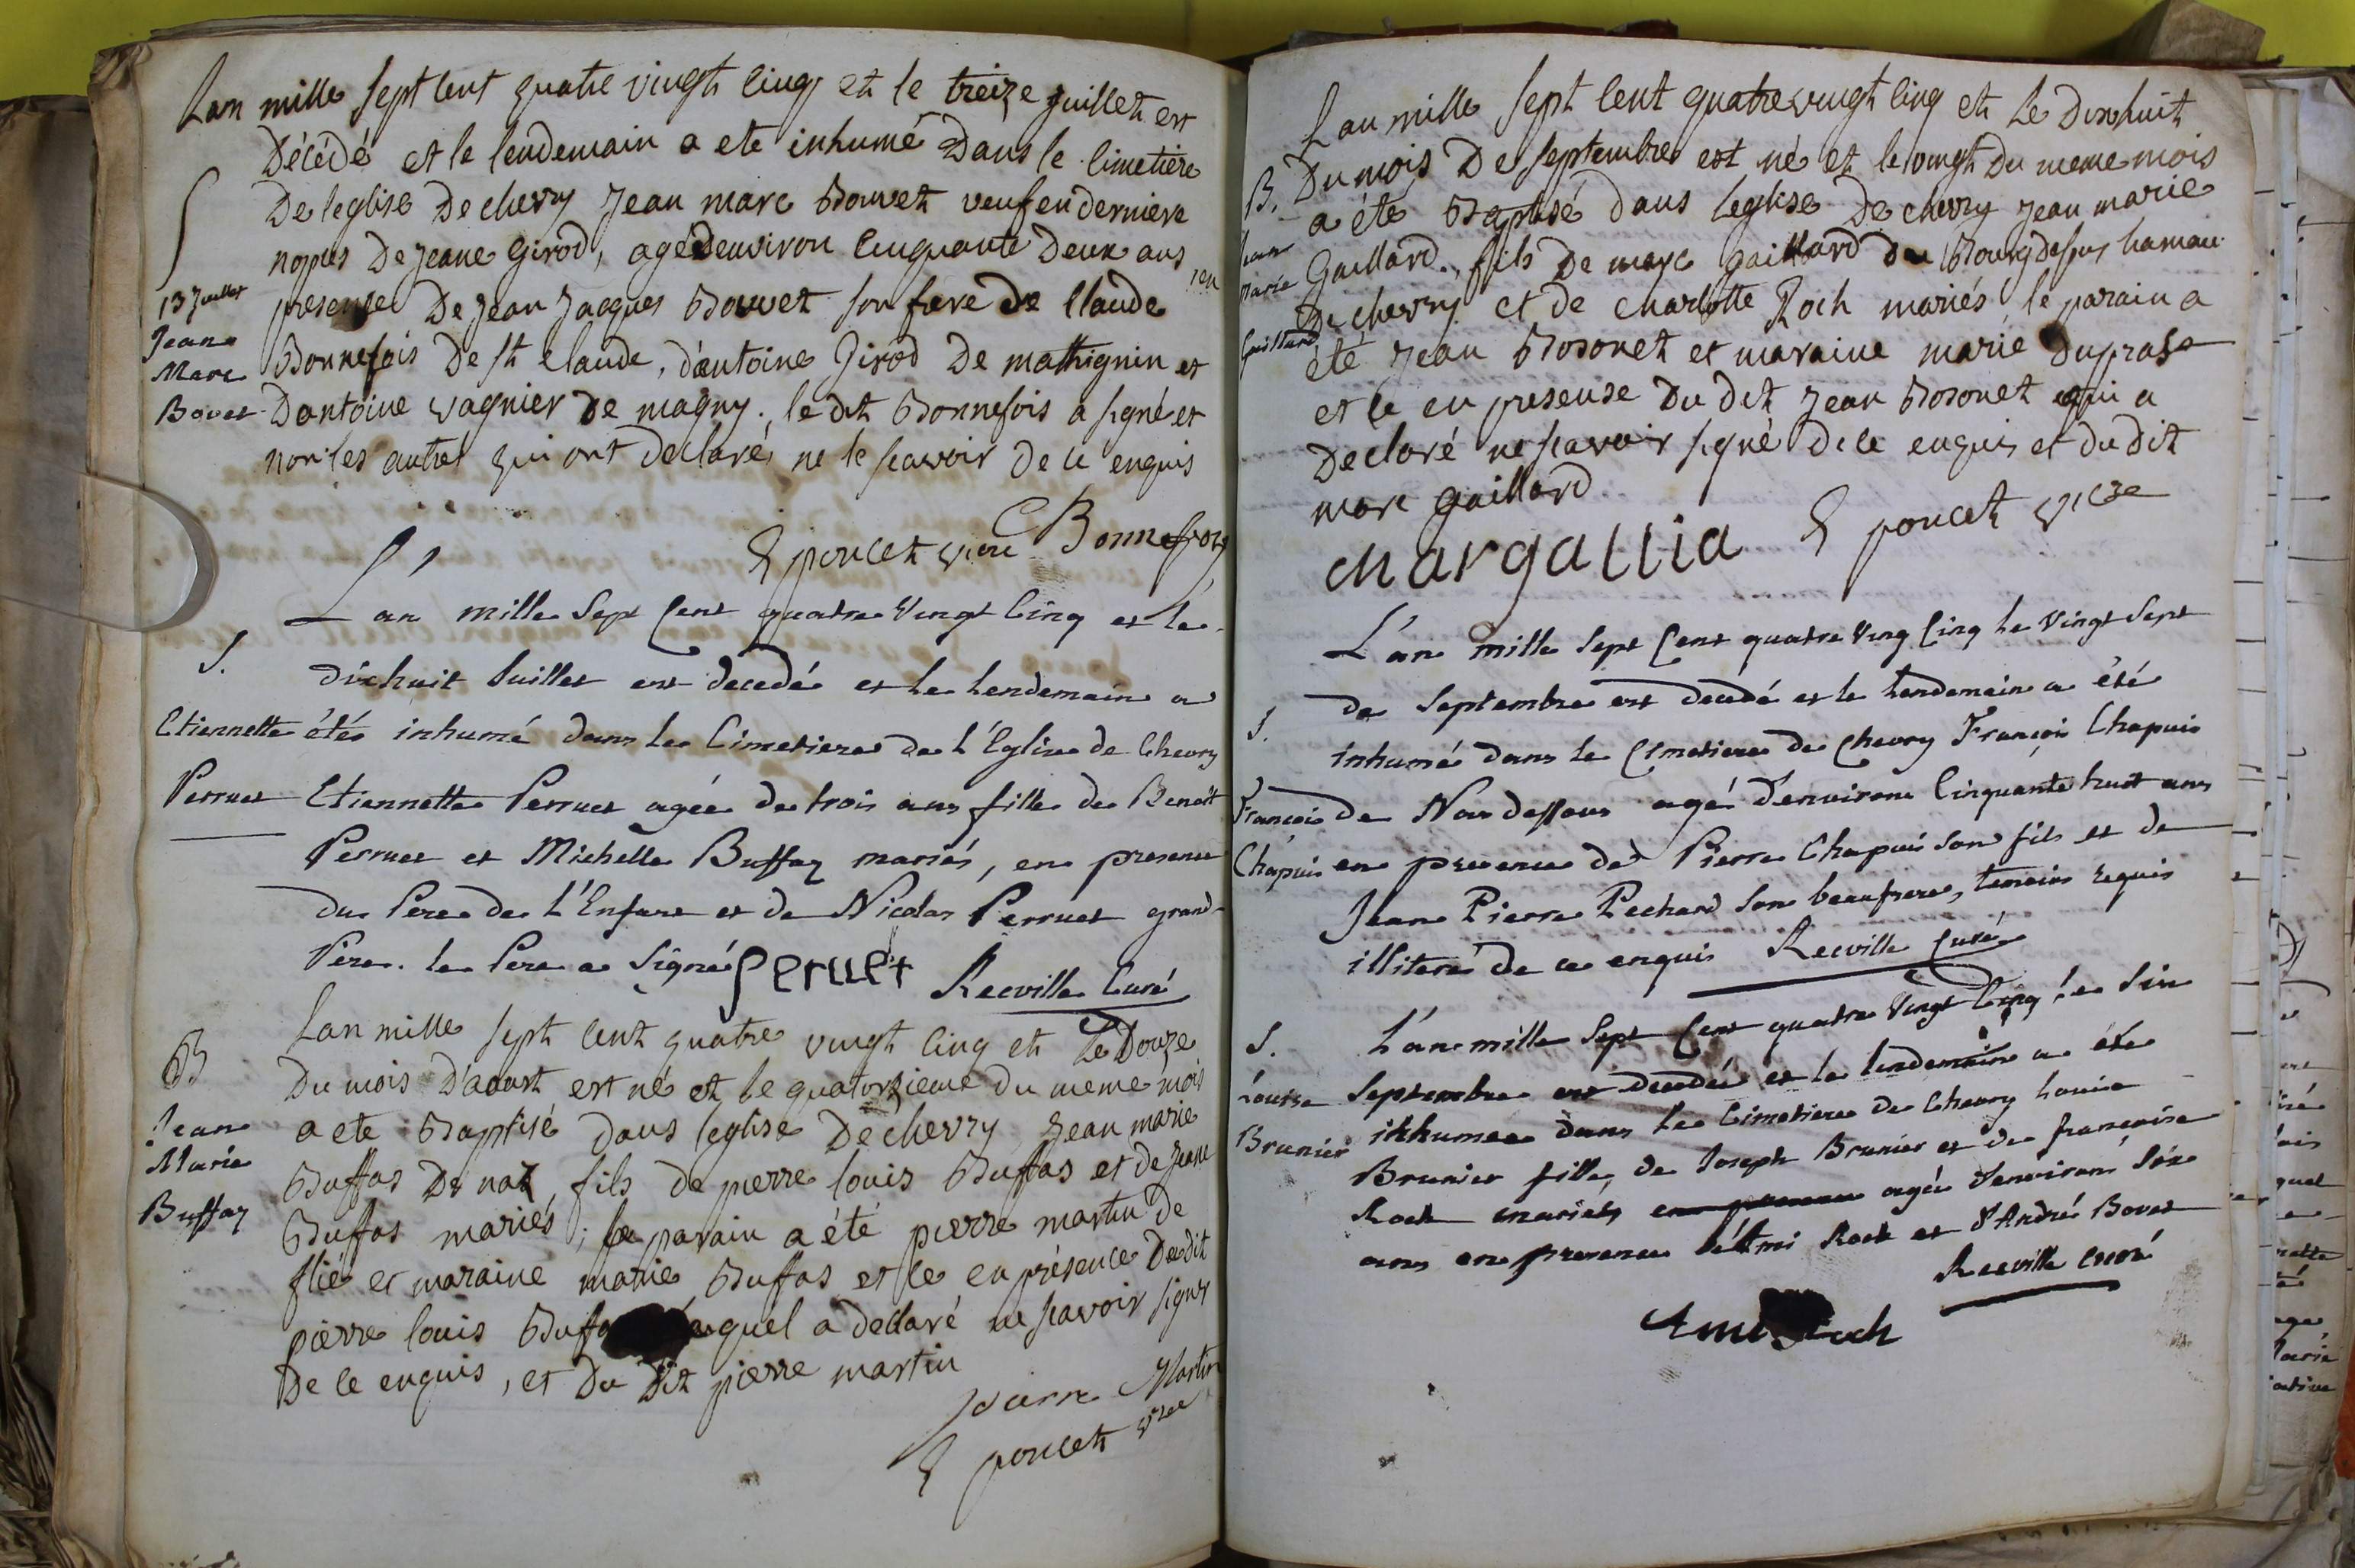 Lan mille sept cent quatre vingt cinq et le treize juillet est
Décédé et le lendemain a ete inhumé Dans le cimetière
De leglise De chevry Jean marc Bouvet veuf en derniere
nopces De jeane Girod, agé Denviron cinquante Deux ans, en
13 Juillet
Jean
Marc
Bovet
presense De Jean Jacques Bouvet son frere De Claude
Bonnefois De st Claude, d'antoine Girod De mathignin et
Dantoine vagnier De magny. le dit Bonnefois a signé et
non les autres qui ont declaré ne le scavoir De ce enquis
E poncet vicre C Bonnefoy
L'an mille Sept Cent quatre Vingt Cinq et le
S.
Etiennette
Perruet
dixhuit Juillet est decedé et le lendemain a
étés inhumé dans le Cimetiere de l'Eglise de Chevry
Etiennette Perruet agée de trois ans fille de Benoit
Perruet et Michelle Buffaz mariés, en presence
du Pere de l'Enfant et de Nicolas Perruet grand-
Pere. le Pere a Signé Perruet Recville Curé
Lan mille sept cent quatre vingt cinq et Le Douze
B
Jean
Marie
Buffaz
Du mois D'aoust est né et le quatorzieme du meme mois
a ete Baptisé dans leglise De chevry Jean marie
Buffas De naz, fils de pierre louis Buffas et de jeane
Buffas mariés; le parain a été pierre martin de
flié et maraine marie Buffas et ce en présence Dudit
pierre louis lequel a declaré ne scavoir signer
De ce enquis, et Du Dit pierre martin
pierre Martin
E poncet vicre
Lan mille sept cent quatre vingt cinq et Le Dixhuit
B.
Jean
Marie
Gaillard
Du mois De septembre est né et le vingt Du meme mois
a été Baptisé dans leglise De chevry Jean marie
Gaillard, fils De marc gaillard du Bourg dessus hameau
De chevry et de charlotte Roch mariés, le parain a
été Jean Bosonet et maraine marie Dupras
et ce en presense Du dit Jean Bosonet qui a
Declaré ne scavoir signé De ce enquis et du dit
marc gaillard
Margallia E poncet vicre
L'an mille Sept Cent quatre Ving Cinq le Vingt Sept
S.
François
Chapuis
de Septembre est decedé et le lendemain a été
inhumé dans le Cimetiere de Chevry François Chapuis
de Naz dessous agé d'environ Cinquante huit ans
en presence de Pierre Chapuis son fils et de
Jean Pierre Pechard son beaufrere, temoins requis
illiteré de ce enquis Recville Curé
L'an mille Sept Cent quatre Vingt Cinq le Six
S.
Louise
Brunier
Septembre est decedée et le lendemain a été
inhumee dans le Cimetiere de Chevry Louise
Brunier fille de Joseph Brunier et de françoise
Rock mariés en presence agée d'environ Six
ans en presence d'Ami Rock et d'André Bovet
Recville curé
Ami Roch